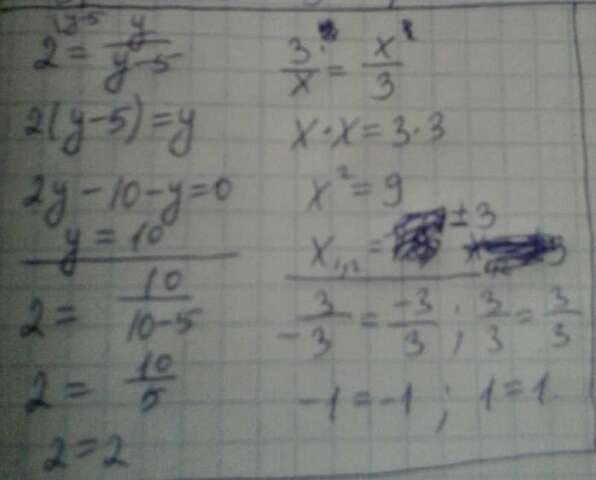 2 = y/(y-5)
2(y-5)=y
2y-10-y=0
y=10
2 = 10/(10-5)
2 = 10/5
2=2
3/x = x/3
x·x=3·3
x²=9
x₁,₂= ±3
3/-3 = -3/3 ; 3/3 = 3/3
-1=-1 ; 1=1.